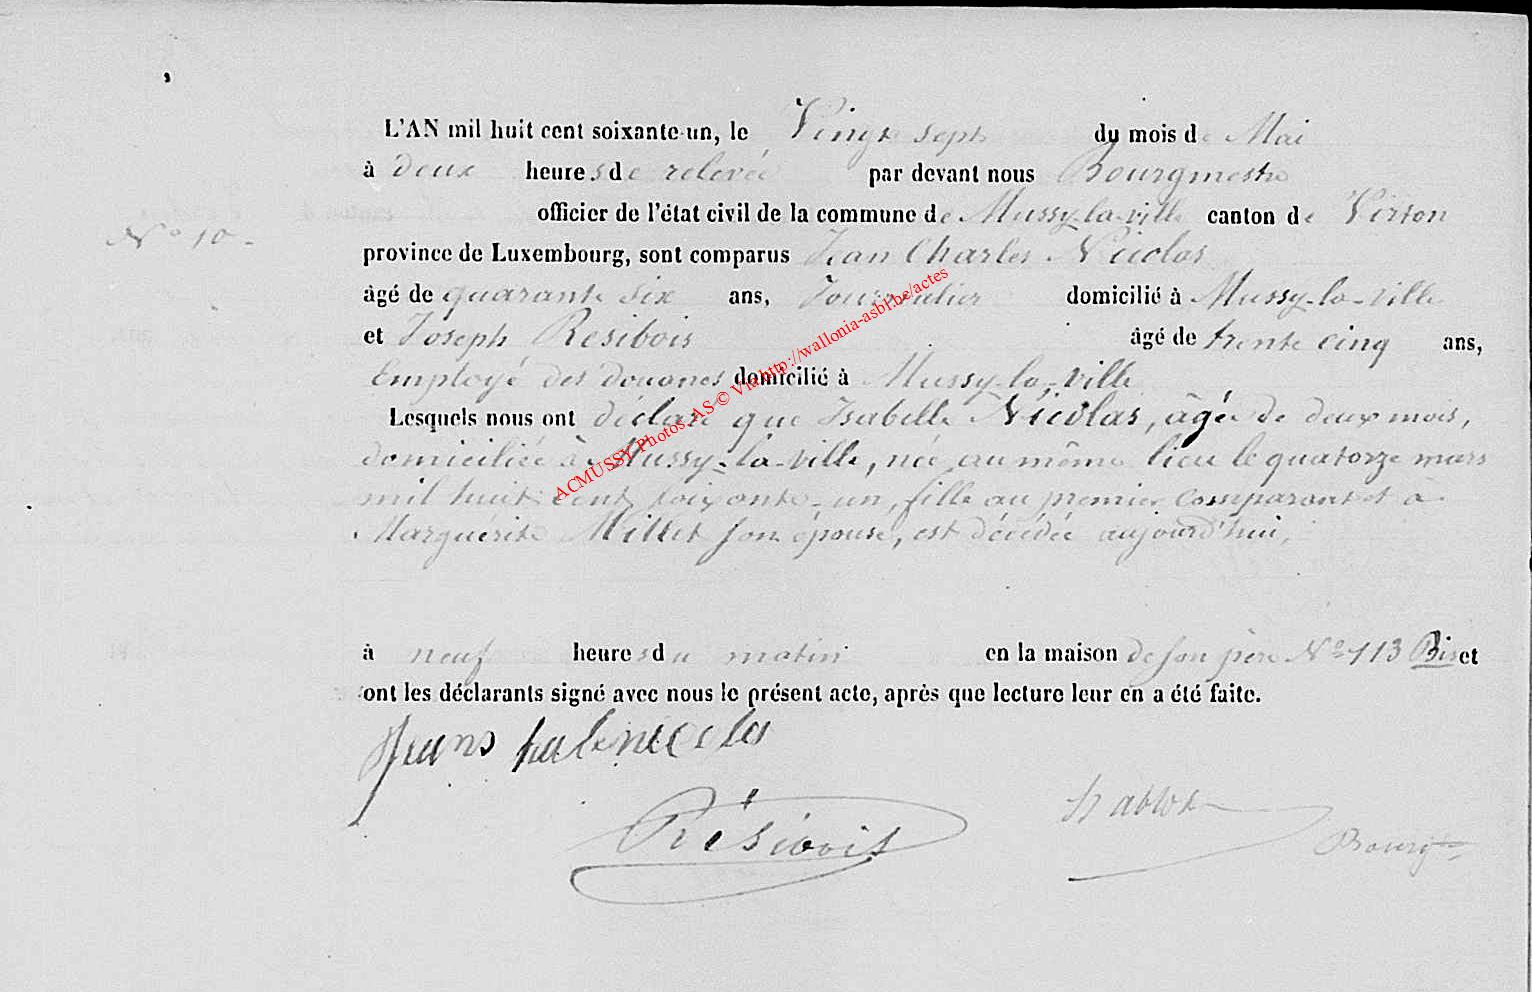 L'AN mil huit cent soixante-un, le Vingt sept du mois de Mai
à deux heures de relevée par devant nous Bourgmestre
officier de l'état civil de la commune de Mussy-la-ville canton de Virton
N° 10.
province de Luxembourg, sont comparus Jean Charles Nicolas
âgé de quarante six ans, Journalier domicilié à Mussy-la-ville
et Joseph Resibois âgé de trente cinq ans,
Employé des douanes domicilié à Mussy-la-ville
Lesquels nous ont déclaré que Isabelle Nicolas, âgée de deux mois,
domiciliée à Mussy-la-ville, née au même lieu le quatorze mars
mil huit cent soixante-un, fille au premier comparant et à
Marguerite Millet son épouse, est décédée aujourd'hui,
à neuf heures du matin en la maison de son père N° 113 Bis et
ont les déclarants signé avec nous le présent acte, après que lecture leur en a été faite.
Résibois
Bourg
ACMUSSY Photos AS © Via http://wallonia-asbl.be/actes